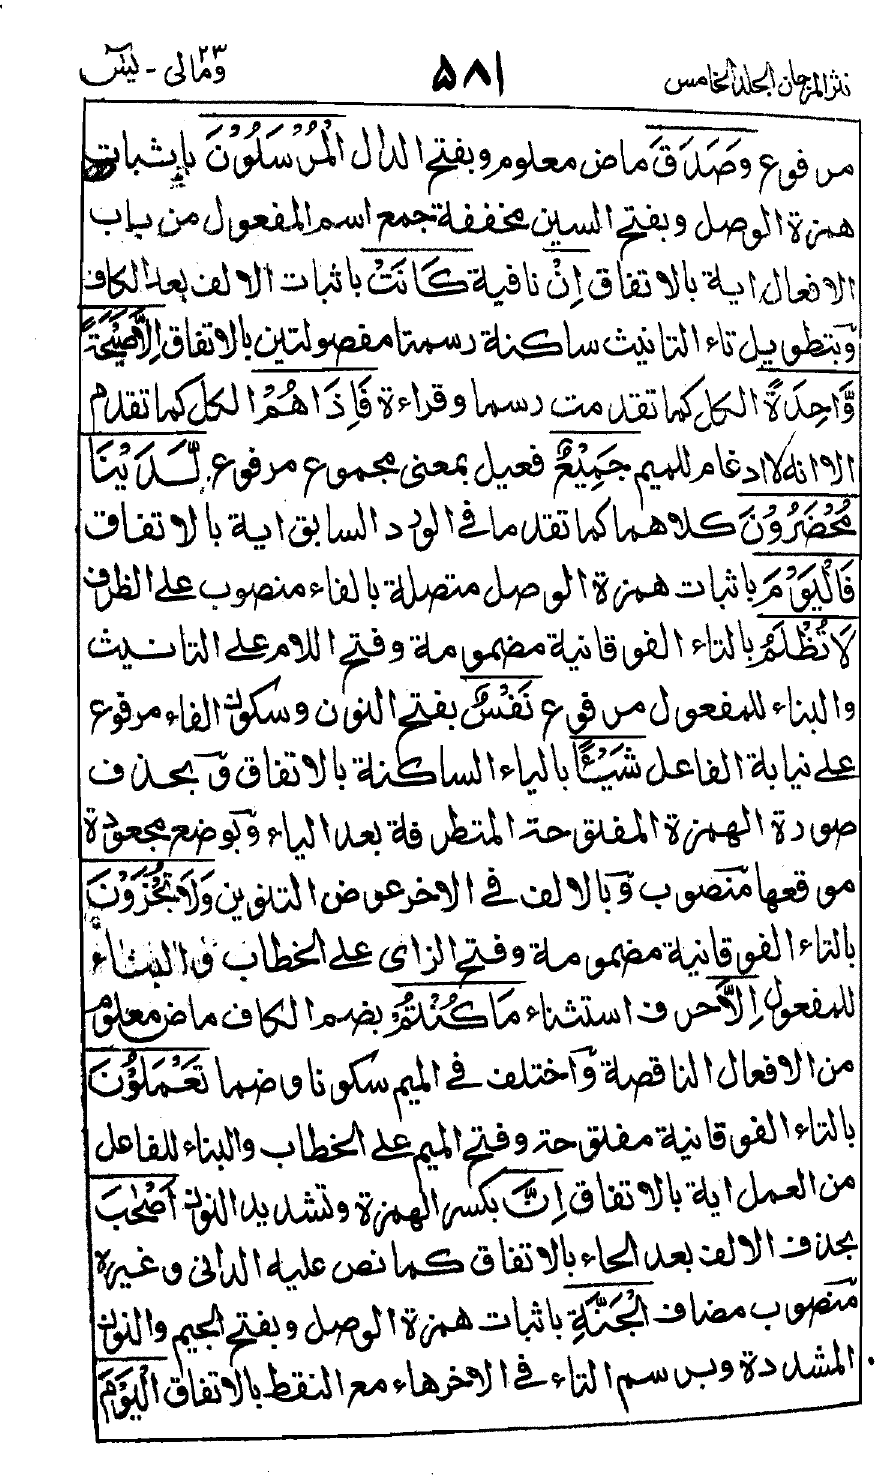 نثر المرجان الجلد الخامس ۵۸۱ ومالی ۲۳ - یٰسٓ
مرفوع وَصَدَقَ ماض معلوم وبفتح الدال الْمُرْسَلُوْنَ باثبات
همزة الوصل وبفتح السين مخففة جمع اسم المفعول من باب
الافعال اية بالاتفاق اِنْ نافية كَانَتْ باثبات الالف بعد الكاف
وبتطويل تاء التانيث ساكنة رسمتا مفصولتين بالاتفاق اِلَّا صَيْحَةً
وَّاحِدَةً الكل كما تقدمت رسما وقراءة فَاِذَا هُمْ الكل كما تقدم
الا انه لا ادغام للميم جَمِيْعٌ فعيل بمعنى مجموع مرفوع لَّدَيْنَا
مُحْضَرُوْنَ كلاهما كما تقدما في الورد السابق اية بالاتفاق
فَالْيَوْمَ باثبات همزة الوصل متصلة بالفاء منصوب على الظرف
لَا تُظْلَمُ بالتاء الفوقانية مضمومة وفتح اللام على التانيث
والبناء للمفعول مرفوع نَفْسٌ بفتح النون وسكون الفاء مرفوع
على نيابة الفاعل شَيْـًٔا بالياء الساكنة بالاتفاق وبحذف
صورة الهمزة المفتوحة المتطرفة بعد الياء وبوضع مجعودة
موقعها منصوب وبالالف في الاخر عوض التنوين وَلَا تُجْزَوْنَ
بالتاء الفوقانية مضمومة وفتح الزاى على الخطاب والبناء
للمفعول اِلَّا حرف استثناء مَا كُنْتُمْ بضم الكاف ماض معلوم
من الافعال الناقصة واختلف في الميم سكونا وضما تَعْمَلُوْنَ
بالتاء الفوقانية مفتوحة وفتح الميم على الخطاب والبناء للفاعل
من العمل اية بالاتفاق اِنَّ بكسر الهمزة وتشديد النون اَصْحٰبَ
بحذف الالف بعد الحاء بالاتفاق كما نص عليه الدانى وغيره
منصوب مضاف الْجَنَّةِ باثبات همزة الوصل وبفتح الجيم والنون
المشددة وبرسم التاء في الاخر هاء مع النقط بالاتفاق الْيَوْمَ